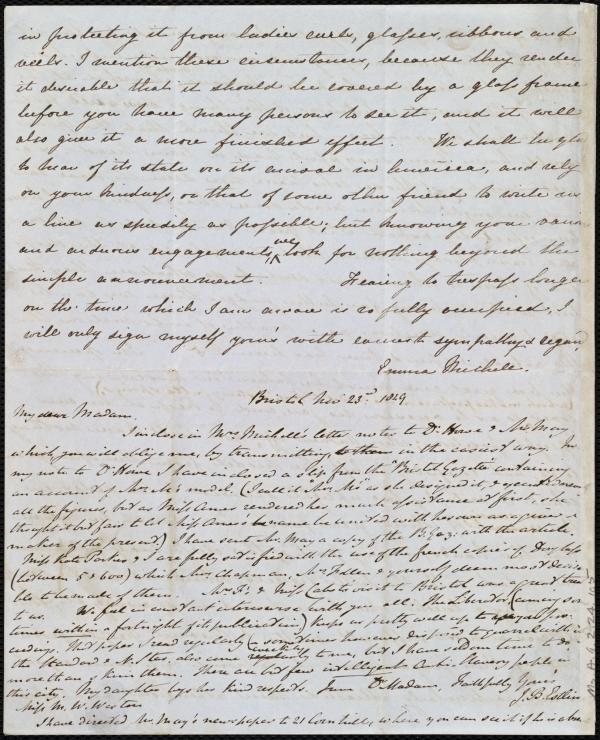 in protecting it from ladies curls, glasses, ribbons and
veils. I mention these circumstances, because they render
it desirable that it should be covered by a glass frame
before you have many persons to see it, and it will
also give it a more finished effect. We shall be glad
to hear of its state on its arrival in America, and rely
on your kindness, or that of some other friend to write us
a line as speedily as possible; but knowing your various
and arduous engagements, we look for nothing beyond the
simple announcement. Fearing to trespass longer
on the time which I am aware is so fully occupied, I
will only sign myself your's with earnest sympathy & regard,
Emma Michell.
Bristol Nov 23rd 1849
My dear Madam.
I inclose in Mrs Michell's letter notes to Dr Howe & Mr May
which you will oblige me, by transmitting to them in the easiest way. In
my note to Dr Howe I have inclosed a slip from the Bristol Gazette containing
an account of Mrs M's model. (I call it Mrs M's as she designed it, &
all the figures, but as Miss Ames rendered her much assistance at first, she
thought it but fair to let Miss Ames's name be united with her own as
maker of the present) I have sent Mr May a copy of the B. Gaz: with the article.
Miss Kate Parkes & I are fully satisfied with the use of the french copies of Douglass
(between 5 & 600) which Mrs Chapman, Mrs Follen & yourself deem most desira-
ble to be made of them. Mrs F's & Miss Cabot's visit to Bristol was a great treat
to us. We feel in constant intercourse with you all. The Liberator (coming some
times within a fortnight of its publication) keeps us pretty well up to your pro-
ceedings. That paper I read regularly (sometimes however disposed to quarrel with it)
the Standard & N. Star, also come weekly to me, but I have seldom time to do
more than skim them. There are but few intelligent Anti-Slavery people in
this city. My daughter begs her kind respects. I am Dr Madam, Faithfully Yours
J. B. Estlin
Miss M. W. Weston
I have directed Mr May's newspaper to 21 Cornhill, where you can see it if he is absent